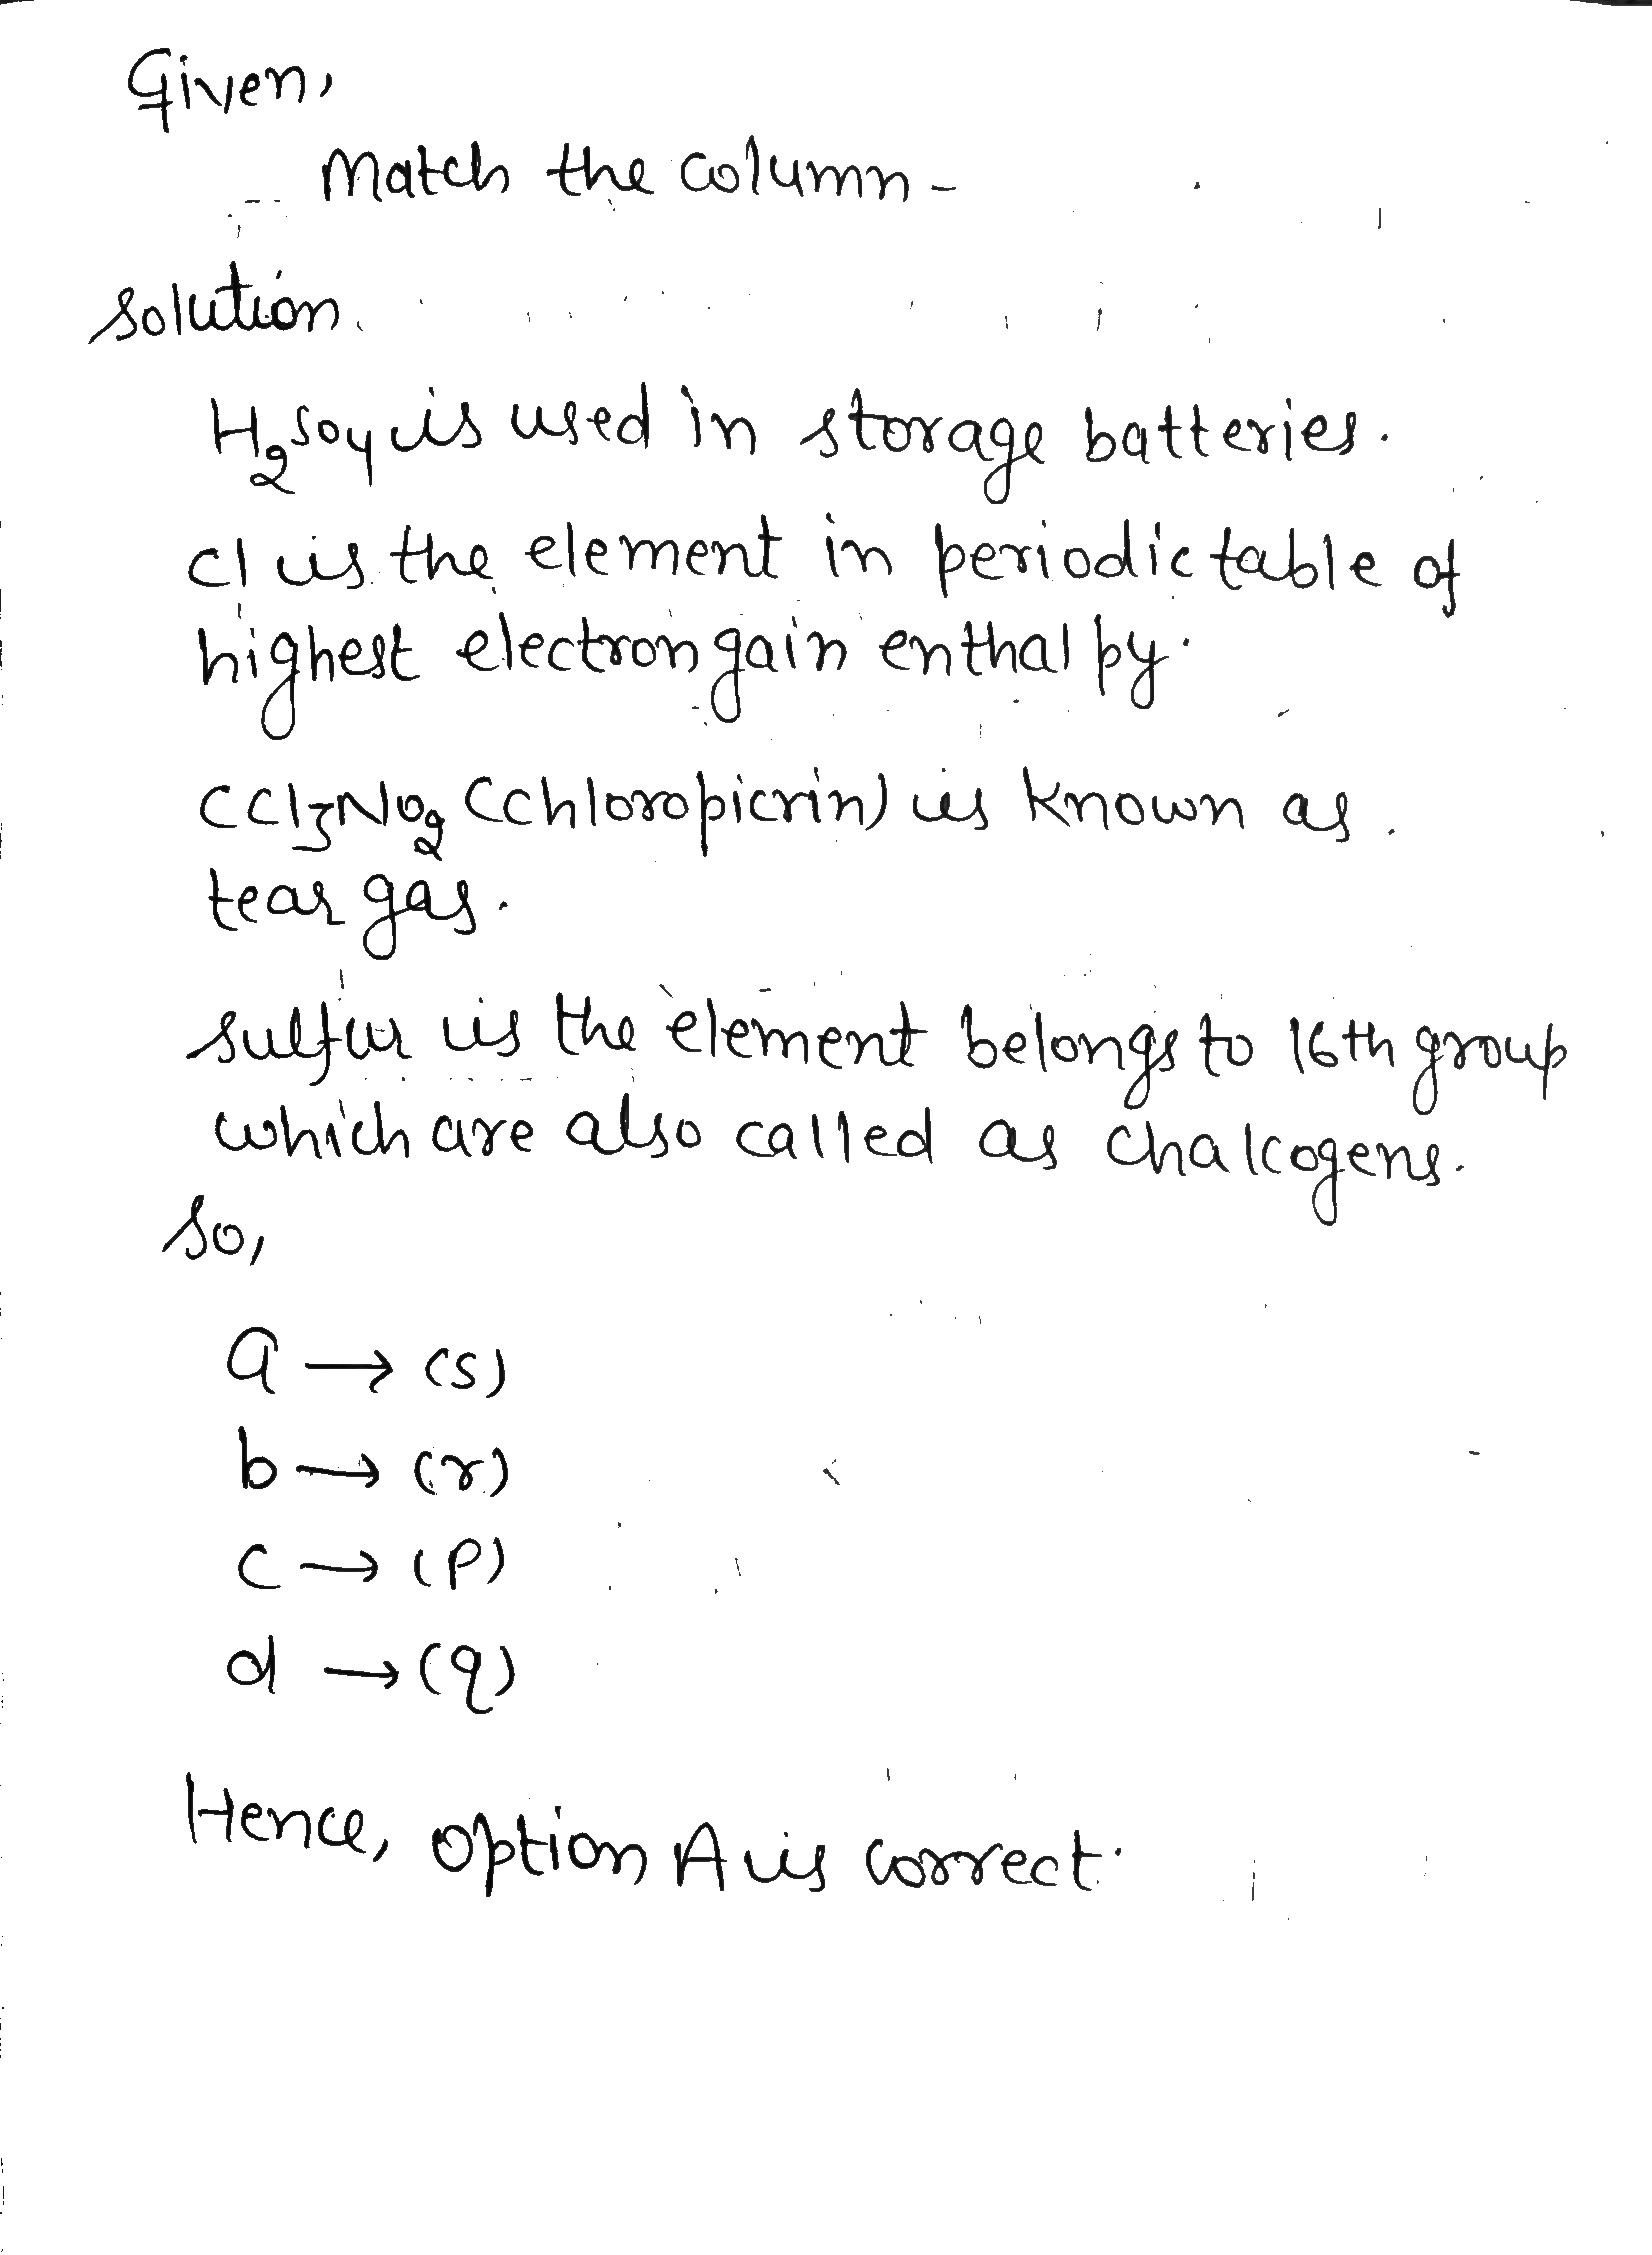 Given,
Match the column -
Solution.
H₂SO₄ is used in storage batteries.
Cl is the element in periodic table of
highest electron gain enthalpy.
CCl₃NO₂ (chloropicrin) is known as
tear gas.
Sulfur is the element belongs to 16th group
which are also called as chalcogens.
So,
a → (s)
b → (r)
c → (p)
d → (q)
Hence, option A is correct.